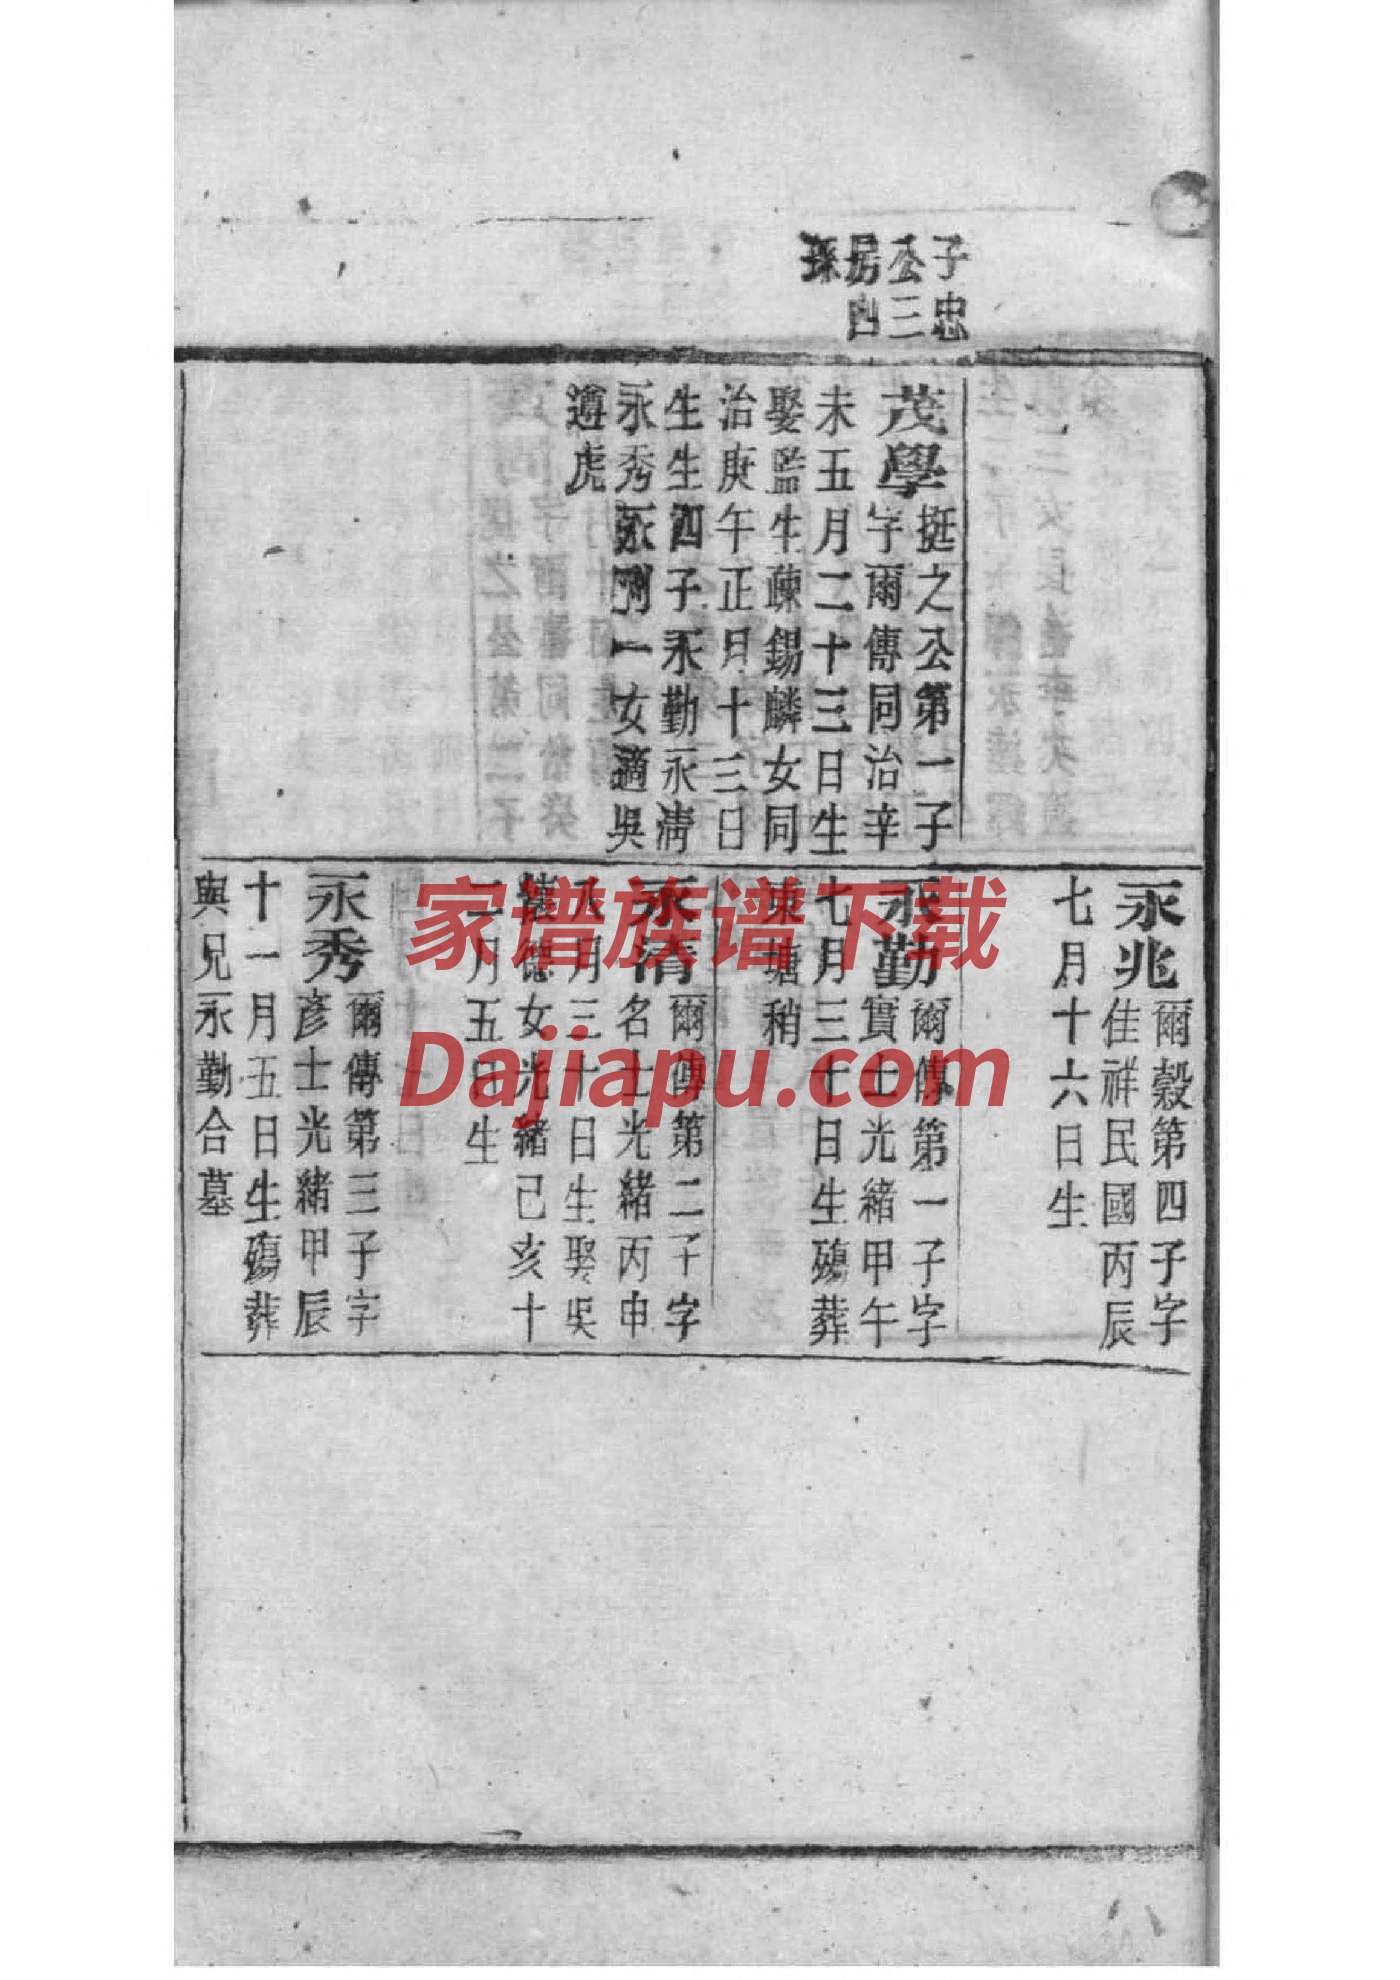 子忠
公三
房四
孫
茂學
挺之公第一子
字爾傳同治辛
未五月二十三日生
娶監生疎錫麟女同
治庚午正月十三日
生生四子永勤永清
永秀永剛一女適吳
遵虎
永兆
爾穀第四子字
佳祥民國丙辰
七月十六日生
永勤
爾傳第一子字
實士光緒甲午
七月三十日生殤葬
東塘稍
永清
爾傳第二子字
名士光緒丙申
八月三十日生娶吳
德女光緒己亥十
二月五日生
永秀
爾傳第三子字
彥士光緒甲辰
十一月五日生殤葬
與兄永勤合墓
家谱族谱下载
Dajiapu.com